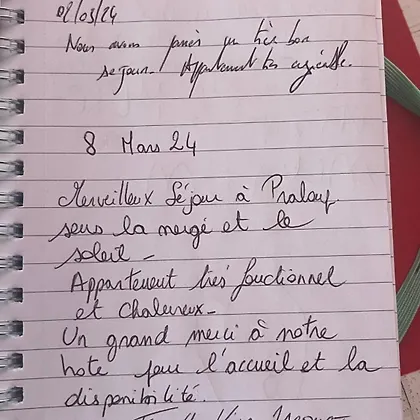 02/03/24
Nous avons passés un très bon
sejour. Appartement très agréable.
8 Mars 24
Merveilleux Séjour à Praloup
sous la neige et le
soleil -
Appartement très fonctionnel
et chaleureux -
Un grand merci à notre
hote pour l'accueil et la
disponibilité.